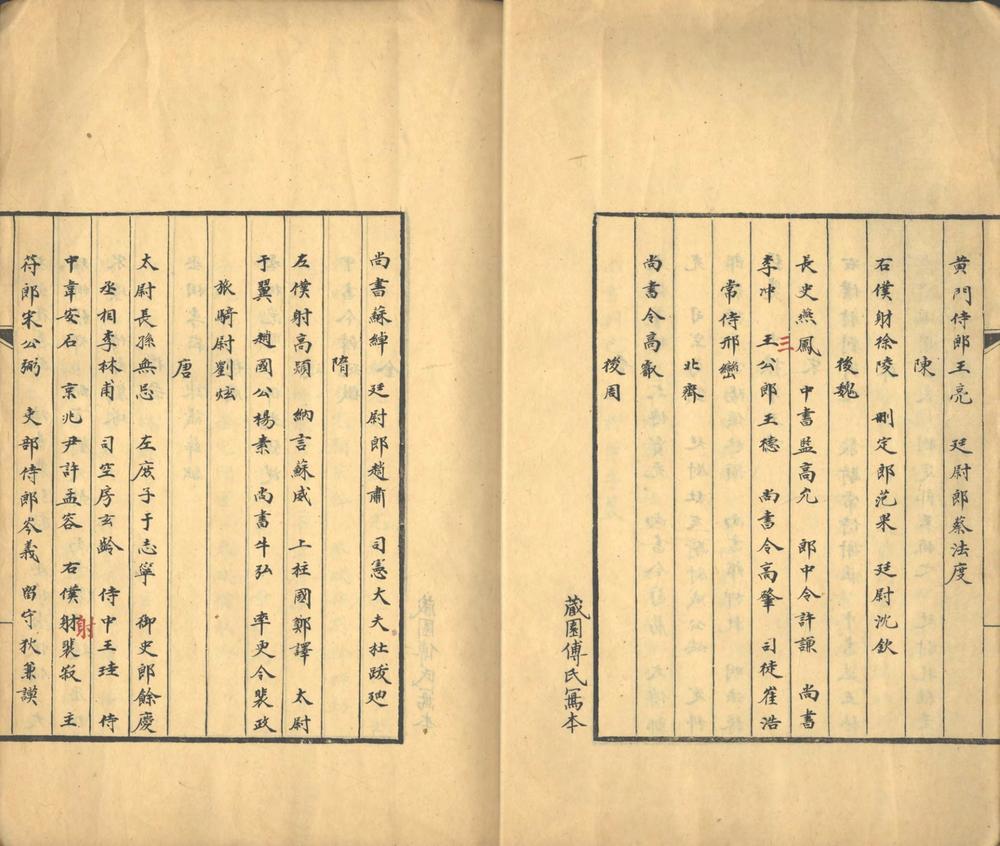 黃門侍郎王亮　廷尉郎蔡法度
陳
右僕射徐陵　刪定郎范杲　廷尉沈欽
後魏
長史燕鳳　中書監高允　郎中令許謙　尚書
李冲　王公郎王德　尚書令高肇　司徒崔浩
三
常侍邢巒
北齊
尚書令高叡
後周
藏園傅氏寫本
尚書蘇綽　廷尉郎趙肅　司憲大夫杜跋迆
隋
左僕射高熲　納言蘇威　上柱國鄭譯　太尉
于翼　趙國公楊素　尚書牛弘　率更令裴政
旅騎尉劉炫
唐
太尉長孫無忌　左庶子于志寧　御史郎餘慶
丞相李林甫　司空房玄齡　侍中王珪　侍
中韋安石　京兆尹許孟容　右僕射裴寂　主
射
符郎宋公弼　吏部侍郎岑義　留守狄兼謨